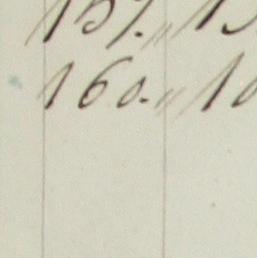 157. " 15
160. " 10